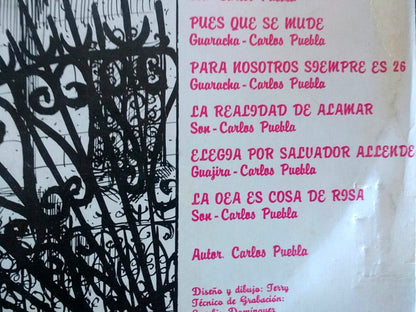 Carlos Puebla
PUES QUE SE MUDE
Guaracha - Carlos Puebla
PARA NOSOTROS SIEMPRE ES 26
Guaracha - Carlos Puebla
LA REALIDAD DE ALAMAR
Son - Carlos Puebla
ELEGIA POR SALVADOR ALLENDE
Guajira - Carlos Puebla
LA OEA ES COSA DE RISA
Son - Carlos Puebla
Autor. Carlos Puebla
Diseño y dibujo: Terry
Técnico de Grabación:
Domínguez